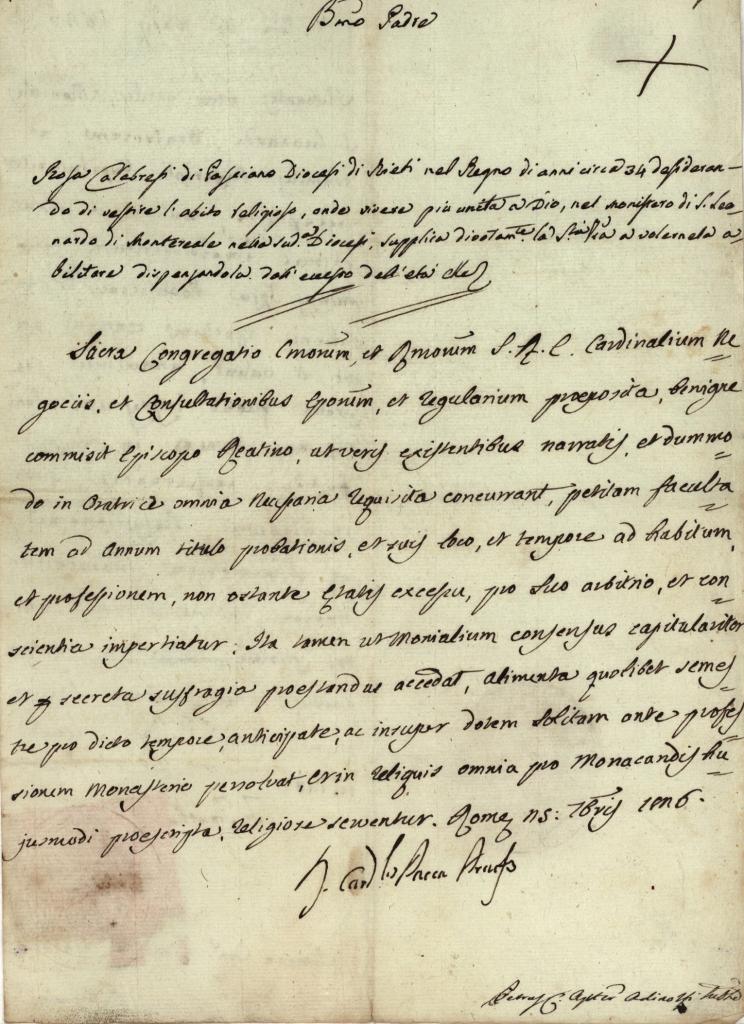 Bmo Padre
Rosa Calabresi di Pasciano Diocesi di Rieti nel Regno di anni circa 34 desideran-
do di vestire l'abito religioso, onde vivere più unita a Dio, nel monistero di S. Leo-
nardo di Montereale nella sudᵃ Diocesi, supplica divotamᵉ la Sᵗᵃ Vʳᵃ a volernela a-
bilitare dispensandola dall'eccesso dell'età che
Sacra Congregatio Emorum, et Rmorum S. R. E. Cardinalium Ne=
gociis, et Consultationibus Eporum, et regularium proeposita, benigne
commisit Episcopo Reatino, ut veris existentibus narratis, et dummo=
do in Oratrice omnia necessaria requisita concurrant, petitam faculta=
tem ad annum titulo probationis, et suis loco, et tempore ad habitum,
et professionem, non ostante Etatis excessu, pro suo arbitrio, et con=
scientia impertiatur; Ita tamen ut Monialium consensus capitulariter
et p secreta suffragia proestandus accedat, alimenta quolibet semes=
tre pro dicto tempore, anticipate, ac insuper dotem solitam ante profes=
sionem Monasterio persolvat, et in reliquis omnia pro Monacandis hu=
jusmodi proescripta, religiose serventur. Rome 15: 7bris 1826.
B. Cardlis Pacca Praefs
Petrus C.